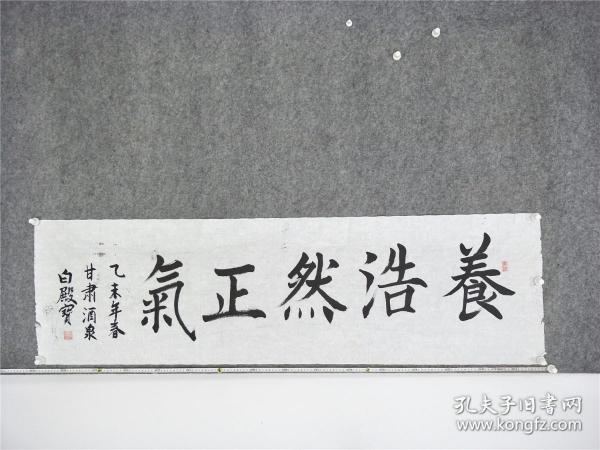 養浩然正氣
乙未年春
甘肃酒泉
白殿寶
孔夫子旧书网
www.kongfz.com